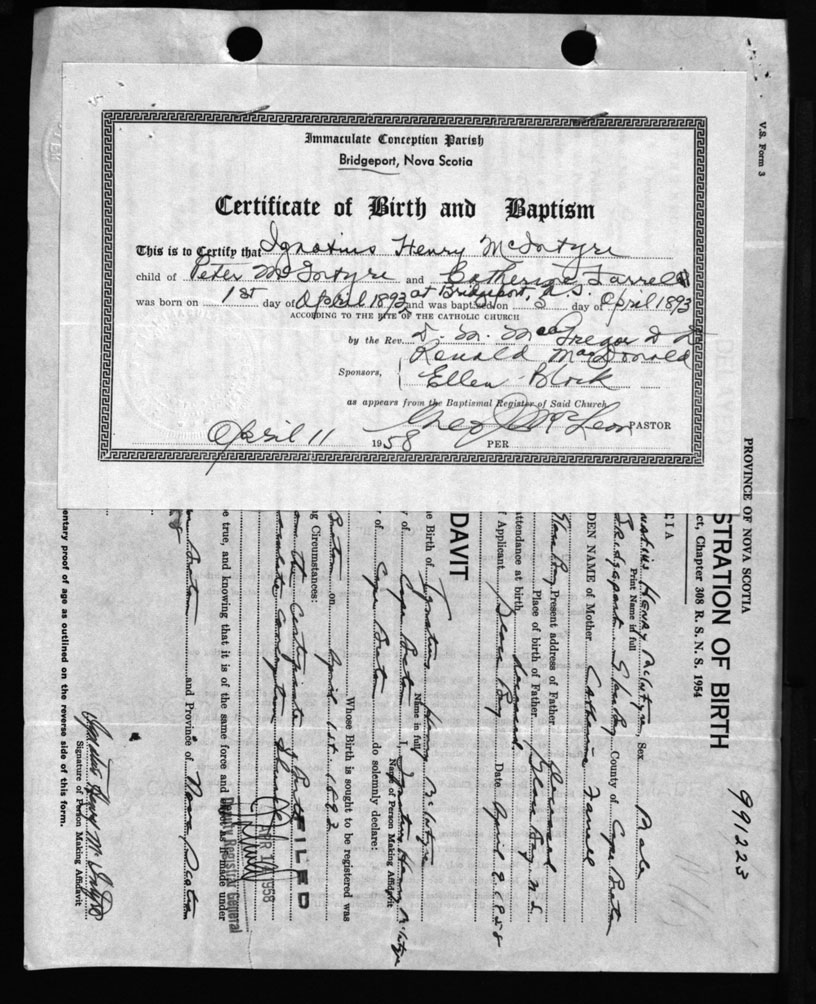 Immaculate Conception Parish
Bridgeport, Nova Scotia
Certificate of Birth and Baptism
This is to Certify that Ignatius Henry McIntyre
child of Peter McIntyre and Catherine Farrell
was born on 1st day of April 1893 at Bridgeport, N.S. and was baptised on 5 day of April 1893
ACCORDING TO THE RITE OF THE CATHOLIC CHURCH
by the Rev. D. M. MacGregor
Sponsors, Ronald MacDonald
Ellen Block
as appears from the Baptismal Register of Said Church
April 11 1958 PER McLeod PASTOR
V.S. Form 3
PROVINCE OF NOVA SCOTIA
STRATION OF BIRTH
ct, Chapter 308 R. S. N. S. 1954
991223
TIA
natius Henry McIntyre Sex Male
Print Name in full
Bridgeport Glace Bay County of Cape Breton
DEN NAME of Mother Catherine Farrell
Glace Bay Present address of Father Deceased
Place of birth of Father Glace Bay N.S.
attendance at birth deceased
f Applicant Glace Bay Date April 9 1958
DAVIT
e Birth of Ignatius Henry McIntyre
Name in full
y of Cape Breton I, Ignatius Henry McIntyre
Name of Person Making Affidavit
of Cape Breton do solemnly declare:
Whose Birth is sought to be registered was
Breton on April 1st 1893
g Circumstances:
the Certificate of Birth
FILED
APR 1 1958
Deputy Registrar General
e true, and knowing that it is of the same force and effect as if made under
Breton and Province of Nova Scotia
58
Ignatius Henry McIntyre
Signature of Person Making Affidavit
entary proof of age as outlined on the reverse side of this form.